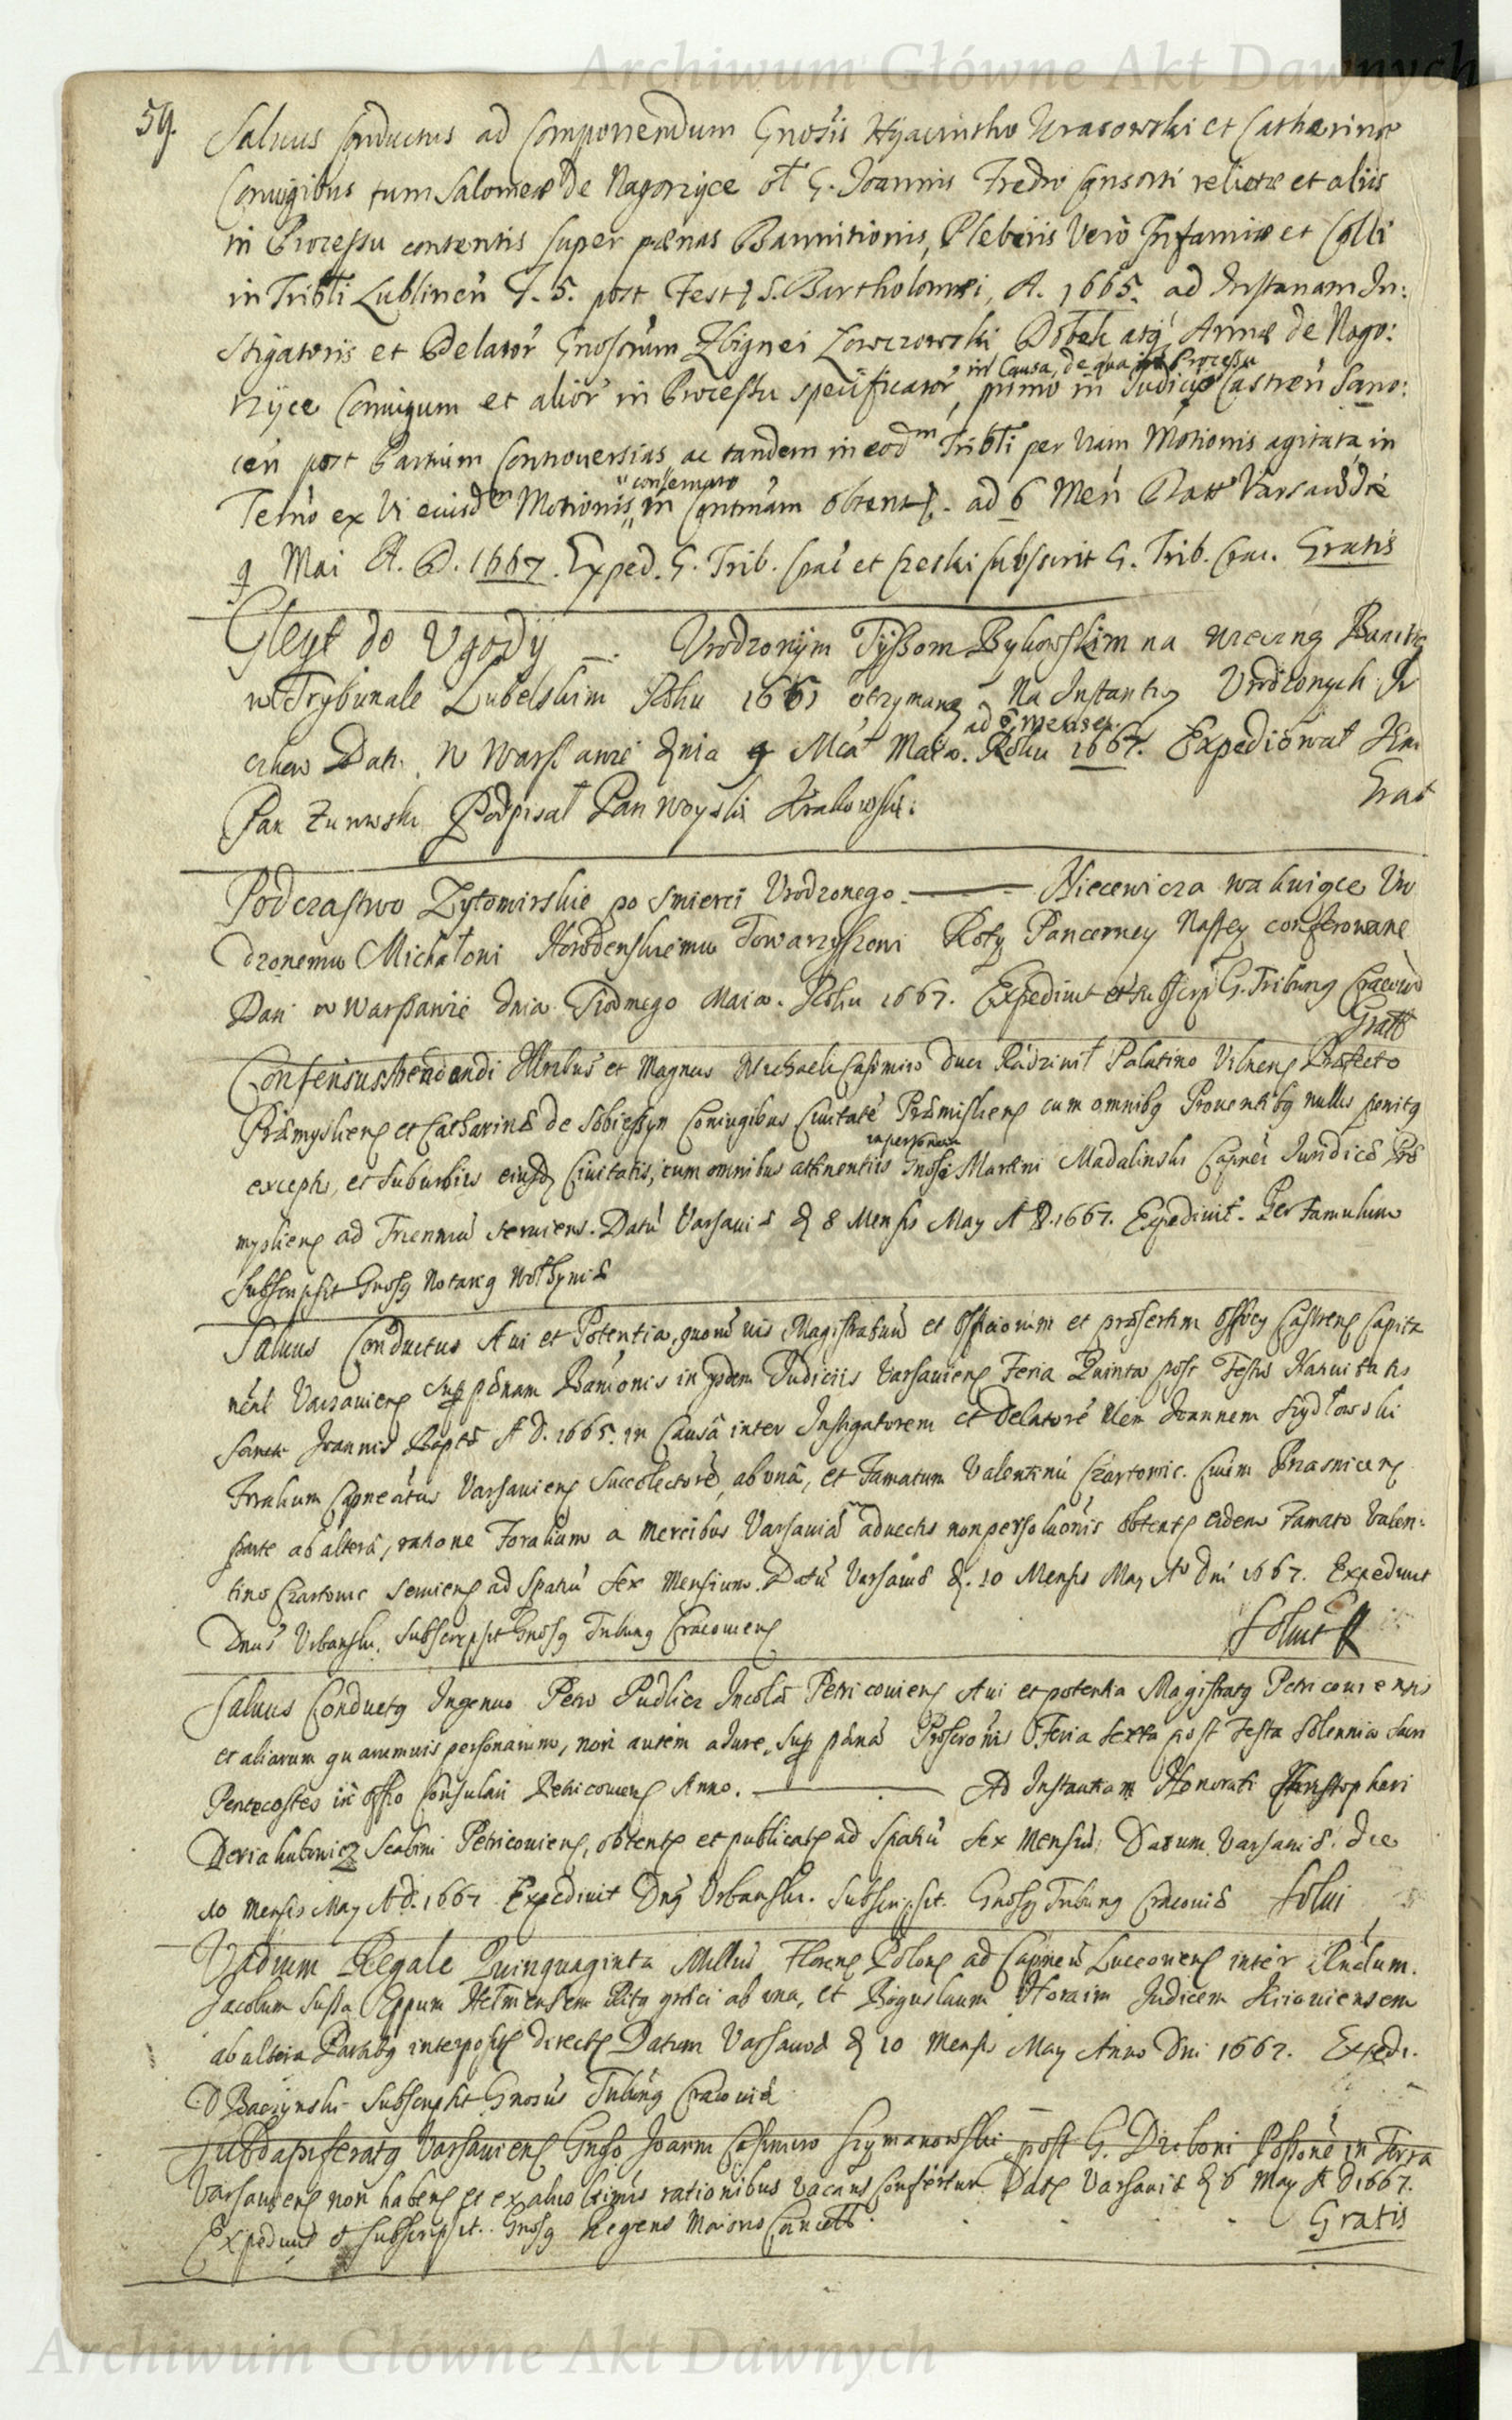 Archiwum Główne Akt Dawnych
59.
Saluus Conductus ad Componendum Gnosis Hyacintho Urasowski et Catharinæ
Coniugibus tum Salomeæ de Nagorzyce ol G. Joannis Fredro Consorti relictæ et aliis
in Processu contentis super pænas Bannitionis, Plebeiis Verò Infamiæ et Colli
in Tribli Lublinen̄ F. 5. post Fest S. Bartholomæi, A. 1665. ad Instanam In:
stigatoris et Delator Gnosorum Zbignei Lowczowski Dobek atq Annæ de Nago:
rzyce Coniugum et alior in Processu specificator, primo in Judicio Castren̄ Sano:
in Causa, de qua in Processu
cen̄ post Partium Controuersias ac tandem in eodm Tribli per Viam Motionis agitata, in
Termo ex Vi eiusdm Motionis in Contmam obtent. ad 6 Men̄ Datt Varsau die
conseruato
9 Mai A. D. 1667. Exped. G. Trib. Crac et Czeski subscrit G. Trib. Crac. Gratis
Gleyt do Vgody —. Vrodzonym Tyssom Bykowskim na wieczną Banitią
w Trybunale Lubelskim Roku 1661 otrzymaną Na Instantią Vrodzonych
ad 6 menses.
Dat. W Warszawie dnia 9 Mca Maia. Roku 1667. Expediował
Pan Żurowski Podpisał Pan Woyski Krakowski. Grat
Podczastwo Zytomirskie po smierci Vrodzonego — Niecewicza wakuiące Vro
dzonemu Michałoni Horodenskiemu Towarzyszowi Roty Pancerney Naszey conferowane
Dan w Warszawie dnia Siodmego Maia. Roku 1667. Expediuit et subscrip G. Tribung Cracou
Gratt
Consensus Arendandi Illribus et Magnus Michaeli Casimiro Duci Radziuił Palatino Vilnens Præfecto
Præmysliens et Catharinæ de Sobieszyn Coniugibus Ciuitate Præmisliens cum omnibq Prouentibq nullis penitq
exceptis, et suburbiis eiusdq Ciuitatis, cum omnibus attinentiis Gnosi Martini Madalinski Capnei Juridicæ Præ
in personam
mysliens ad Trienniu seruiens. Datū Varsauiæ d 8 Mensis May A D. 1667. Expediuit. Per Famulum
Subscripsit Gnosq Notariq Wołhyniæ
Saluus Conductus A ui et Potentia, quorū uis Magistratuū et Officiorum et præsertim Officy Castrens Capita
neal Varsauiens sup pœnam Banionis in ysdem Judiciis Varsauiens Feria Quinta post Festū Natiuitatis
Sancti Joannis Baptæ A D. 1665. in Causā inter Instigatorem et Delatore Joannem Szydłowski
Foralium Capneatus Varsauiens Succolectore, ab unā, et Famatum Valentinū Czartowic. Ciuem Prasnicens
parte ab alterā, ratione Foralium a Mercibus Varsauiam aduectis non persolutionis obtents eidem Famato Valen:
tino Czartowic seruiens ad Spatiū Sex Mensium. Datū Varsauiæ d. 10 Mensis May Ao Dni 1667. Expediuit
Dnus Vrbanski. Subscripsit Gnosq Tribunq Cracouiens Soluit
Saluus Conductq Ingenuo Petro Pudlicz Incolæ Petricouiens A ui et potentia Magistratq Petricouiensis
et aliarum quarumuis personarum, non autem a Jure, sup pœnā Proscronis Feria Sexta post Festa Solennia Sacri
Pentecostes in offio Consulari Petricouiens Anno. — Ad Instantiam Honorati Christopheri
Deriahubowicz Scabini Petricouiens, obtents et publicats ad Spatiū Sex Mensiū. Datum Varsauiæ. die
10 mensis May A D. 1667 Expediuit Dnq Vrbanski. Subscripsit. Gnosq Tribunq Cracouiæ Solui
Vadium Regale Quinquaginta Milliū Florens Polons ad Capneū Luceouiens inter
Jacobum Susza Eppum Hełmensem Ritq græci ab una, et Boguslaum Horaim Judicem Kiiouiensem
ab altera Partibq interposits directs Datum Varsauiæ d 10 Mensis May Anno Dni 1667. Expedi.
D Baczynski Subscripsit Gnosus Tribunq Cracouiæ
Subdapiferatq Varsauiens Gnoso Joanni Casimiro Szymanowski post G. Dziboni Possone in Terra
Varsauiens non habens et ex aliis rationibus vacans Confertur Dats Varsauiæ d 6 May A D 1667.
Expediuit et subscripsit. Gnosq Regens Maioris Cancell. Gratis
Archiwum Główne Akt Dawnych